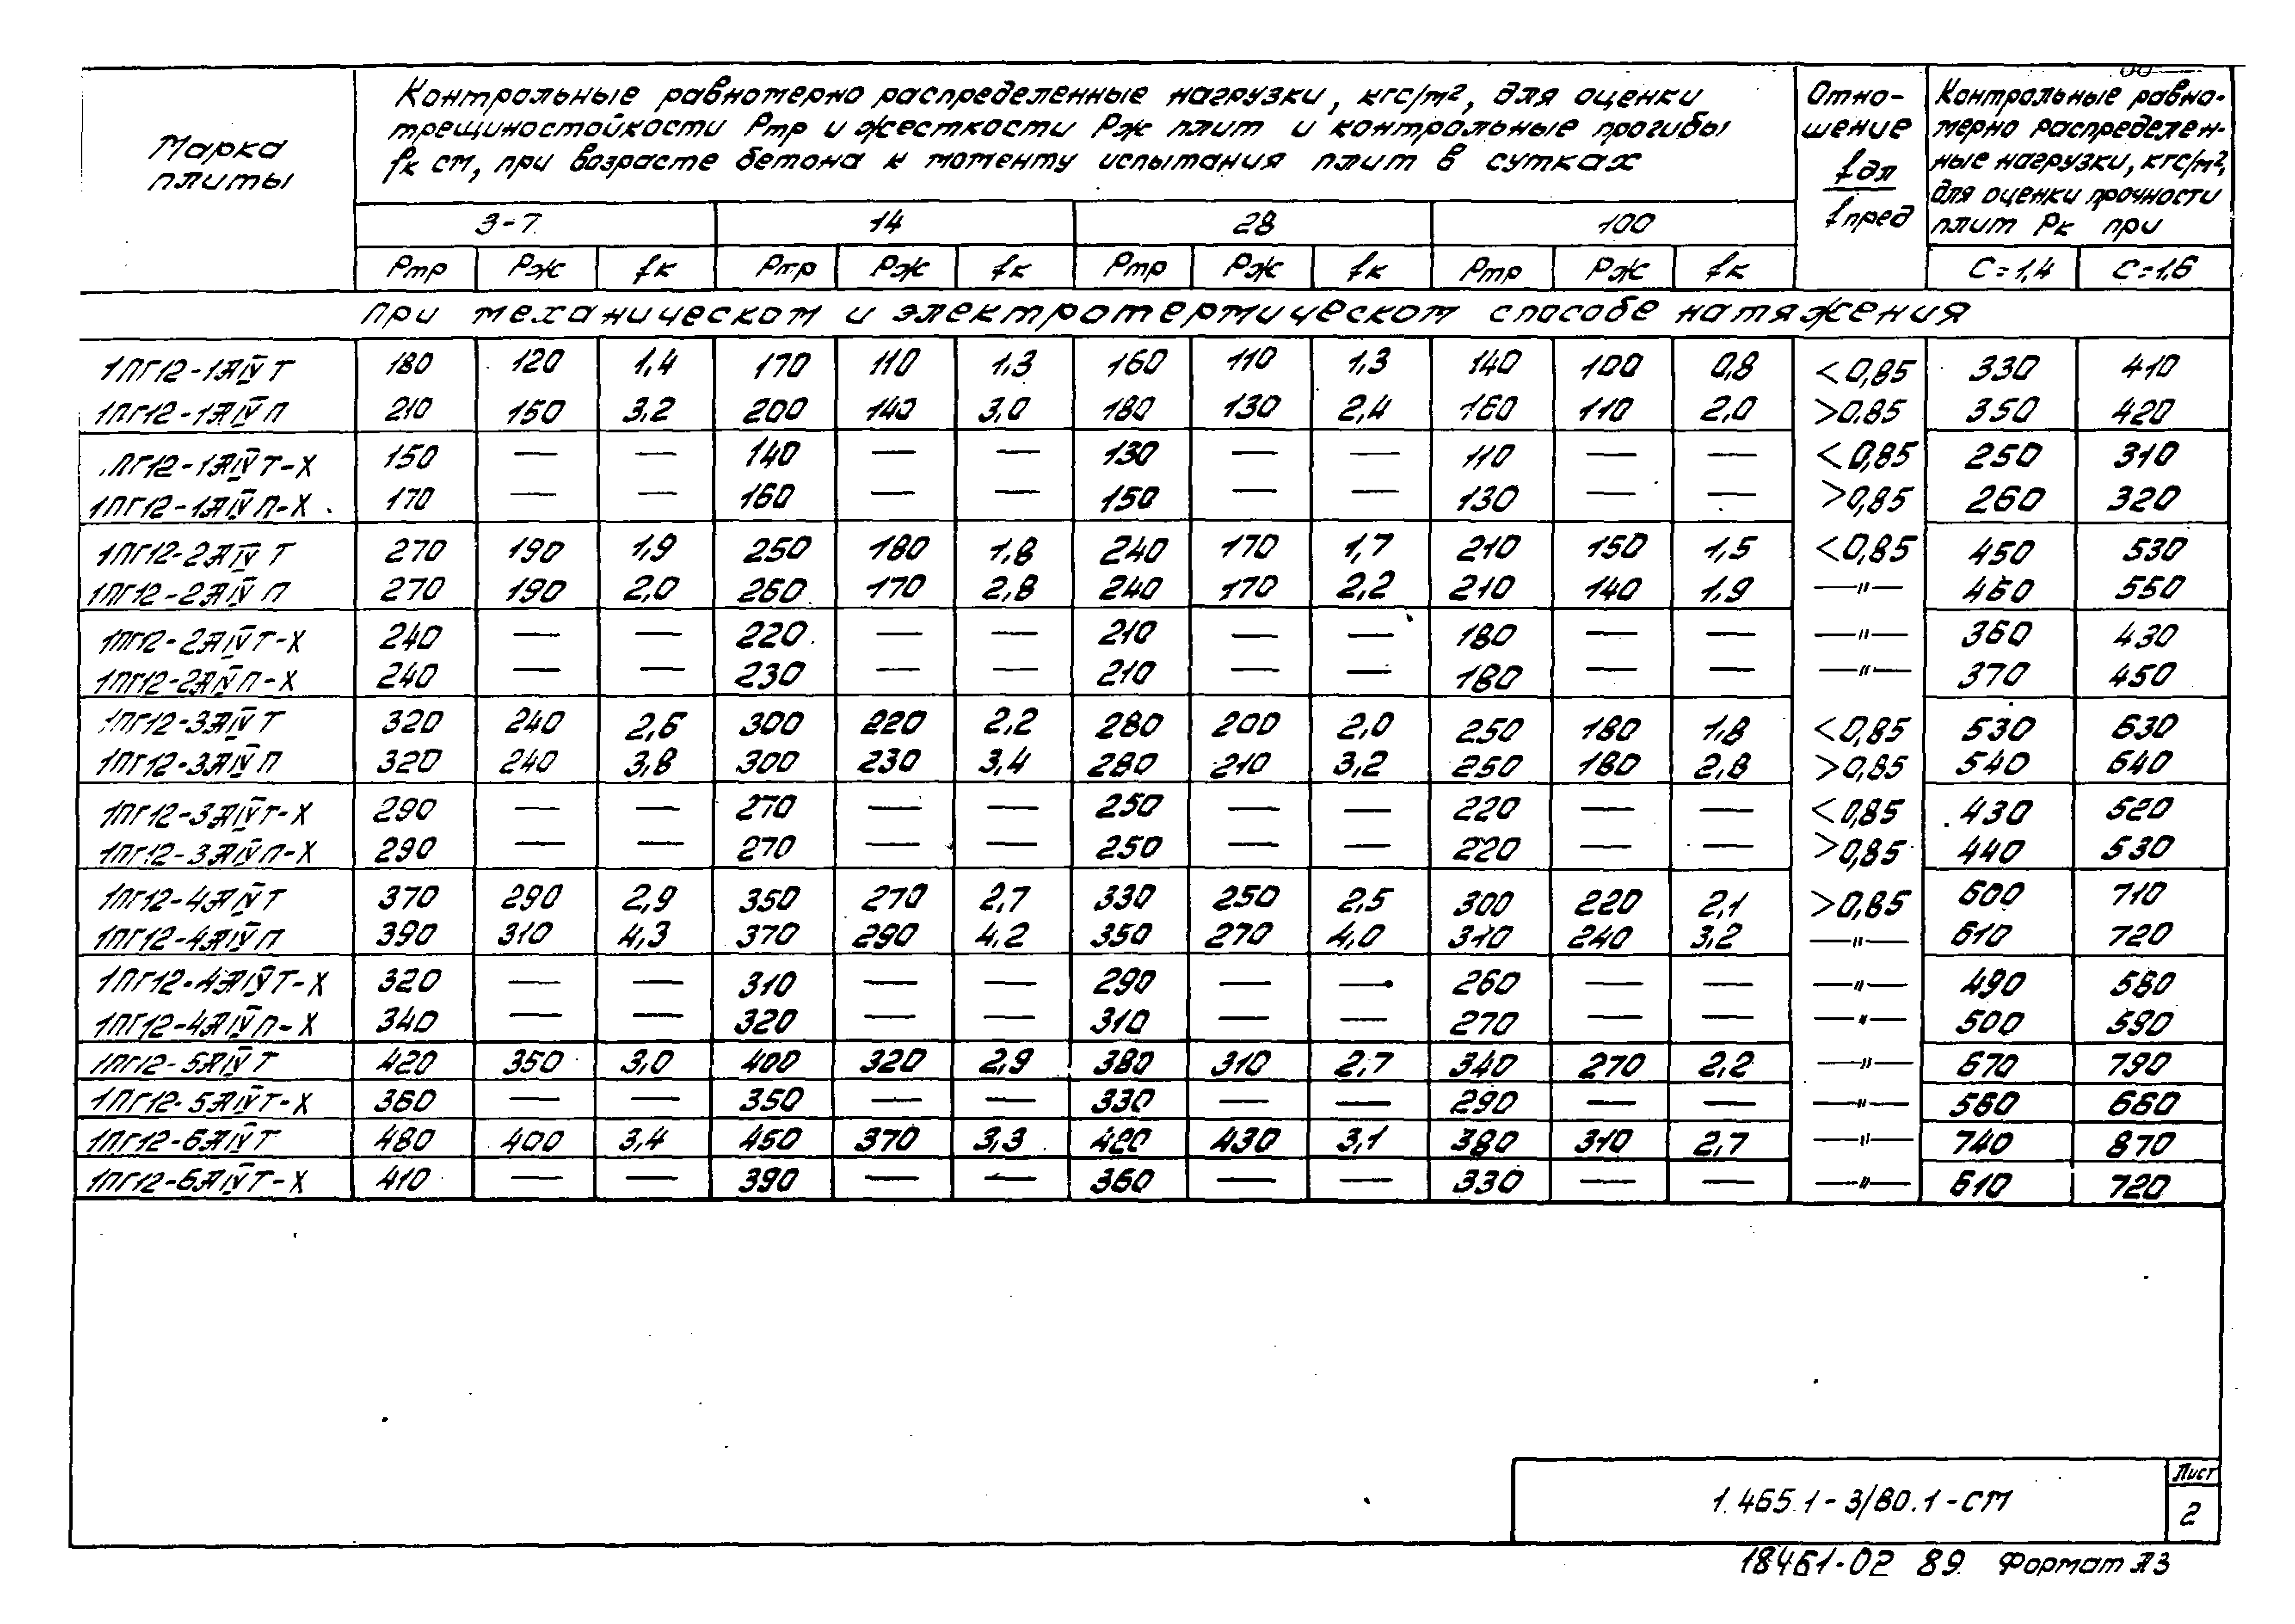 Марка плиты
Контрольные равномерно распределенные нагрузки, кгс/м², для оценки
трещиностойкости Ртр и жесткости Рж плит и контрольные прогибы
fк см, при возрасте бетона к моменту испытания плит в сутках
Отно-
шение
fдл
fпред
Контрольные равно-
мерно распределен-
ные нагрузки, кгс/м²,
для оценки прочности
плит Рк при
3-7 14 28 100
Ртр Рж fк Ртр Рж fк Ртр Рж fк Ртр Рж fк С=1,4 С=1,6
при механическом и электротермическом способе натяжения
1ПГ12-1АIVТ 180 120 1,4 170 110 1,3 160 110 1,3 140 100 0,8 <0,85 330 410
1ПГ12-1АIVП 210 150 3,2 200 140 3,0 180 130 2,4 160 110 2,0 >0,85 350 420
1ПГ12-1АIVТ-Х 150 — — 140 — — 130 — — 110 — — <0,85 250 310
1ПГ12-1АIVП-Х 170 — — 160 — — 150 — — 130 — — >0,85 260 320
1ПГ12-2АIVТ 270 190 1,9 250 180 1,8 240 170 1,7 210 150 1,5 <0,85 450 530
1ПГ12-2АIVП 270 190 2,0 260 170 2,8 240 170 2,2 210 140 1,9 —"— 460 550
1ПГ12-2АIVТ-Х 240 — — 220 — — 210 — — 180 — — —"— 360 430
1ПГ12-2АIVП-Х 240 — — 230 — — 210 — — 180 — — —"— 370 450
1ПГ12-3АIVТ 320 240 2,6 300 220 2,2 280 200 2,0 250 180 1,8 <0,85 530 630
1ПГ12-3АIVП 320 240 3,8 300 230 3,4 280 210 3,2 250 180 2,8 >0,85 540 640
1ПГ12-3АIVТ-Х 290 — — 270 — — 250 — — 220 — — <0,85 430 520
1ПГ12-3АIVП-Х 290 — — 270 — — 250 — — 220 — — >0,85 440 530
1ПГ12-4АIVТ 370 290 2,9 350 270 2,7 330 250 2,5 300 220 2,1 >0,85 600 710
1ПГ12-4АIVП 390 310 4,3 370 290 4,2 350 270 4,0 310 240 3,2 —"— 610 720
1ПГ12-4АIVТ-Х 320 — — 310 — — 290 — — 260 — — —"— 490 580
1ПГ12-4АIVП-Х 340 — — 320 — — 310 — — 270 — — —"— 500 590
1ПГ12-5АIVТ 420 350 3,0 400 320 2,9 380 310 2,7 340 270 2,2 —"— 670 790
1ПГ12-5АIVТ-Х 360 — — 350 — — 330 — — 290 — — —"— 560 660
1ПГ12-6АIVТ 480 400 3,4 450 370 3,3 420 430 3,1 380 310 2,7 —"— 740 870
1ПГ12-6АIVТ-Х 410 — — 390 — — 360 — — 330 — — —"— 610 720
1.465.1-3/80.1-СМ
Лист
2
18461-02 89 Формат А3